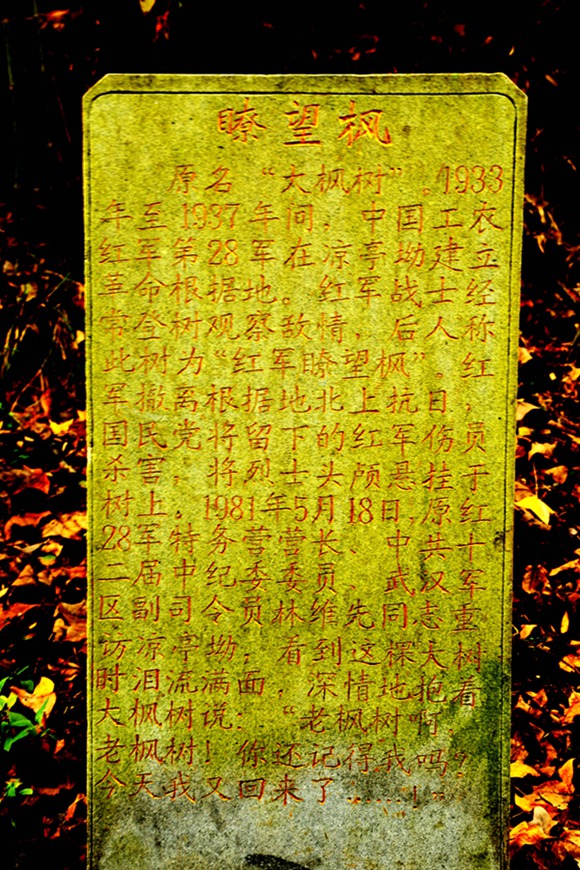 瞭望枫
原名“大枫树”。1933
年至1937年间，中国工农
红军第28军在凉亭坳建立
革命根据地。红军战士经
常登树观察敌情，后人称
此树为“红军瞭望枫”。红
军撤离根据地北上抗日，
国民党将留下的红军伤员
杀害，将烈士头颅悬挂于
树上。1981年5月18日，原红
28军特务营营长、中共十
二届中纪委委员、武汉军
区副司令员林维先同志重
访凉亭坳，看到这棵大树
时泪流满面，深情地抱着
大枫树说：“老枫树啊，
老枫树！你还记得我吗？
今天我又回来了……！”